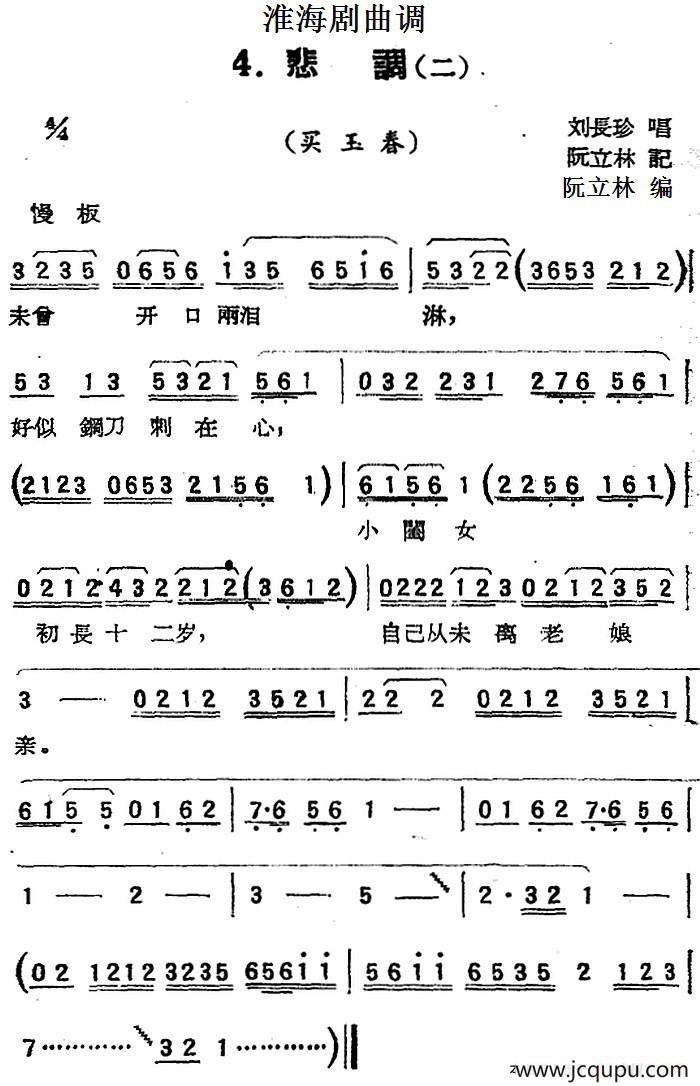 淮海剧曲调
4. 悲 調(二)
4/4
(买玉春)
刘長珍 唱
阮立林 記
阮立林 编
慢板
3 2 3 5 0 6 5 6 i 3 5 6 5 i 6 | 5 3 2 2 (3 6 5 3 2 1 2) |
未曾 开口兩泪 淋，
5 3 1 3 5 3 2 1 5 6 1 | 0 3 2 2 3 1 2 7 6 5 6 1 |
好似鋼刀刺在心，
(2 1 2 3 0 6 5 3 2 1 5 6 1) | 6 1 5 6 1 (2 2 5 6 1 6 1) |
小閨女
0 2 1 2· 4 3 2 2 2 1 2 (3 6 1 2) | 0 2 2 2 1 2 3 0 2 1 2 3 5 2 |
初長十二岁， 自己从未离老娘
3 — 0 2 1 2 3 5 2 1 | 2 2 2 0 2 1 2 3 5 2 1 |
亲。
6 1 5 5 0 1 6 2 | 7·6 5 6 1 — | 0 1 6 2 7·6 5 6 |
1 — 2 — | 3 — 5 — | 2 · 3 2 1 — |
(0 2 1 2 1 2 3 2 3 5 6 5 6 i i | 5 6 i i 6 5 3 5 2 1 2 3 |
7 ········· 3 2 1 ·········)‖
www.jcqupu.com